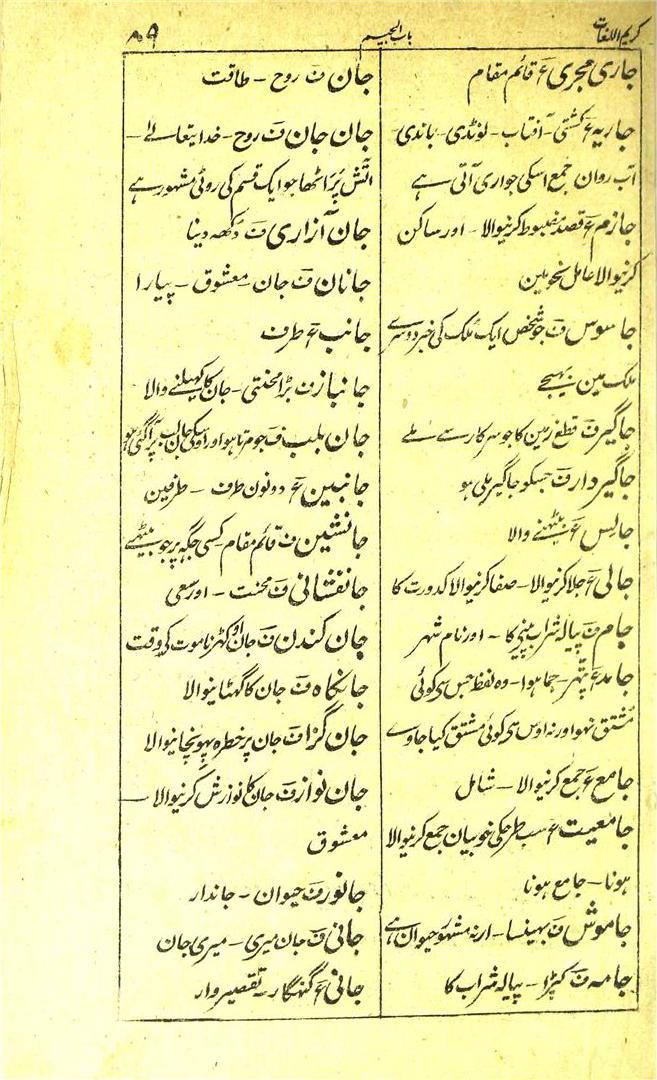 کریم اللغات
باب الجیم
۸۹
جاری مجری ع قائم مقام
جاریہ ع کشتی ۔ آفتاب ۔ لونڈی ۔ باندی
آب روان جمع اسکی جواری آتی ہے
جازم ع قصد مضبوط کرنیوالا ۔ اور ساکن
کرنیوالا عامل نحو مین
جاسوس ف جو شخص ایک ملک کی خبر دوسرے
ملک مین بھیجے
جاگیر ف قطع زمین کا جو سرکار سے ملے
جاگیردار ف جسکو جاگیر ملی ہو
جالس ع بیٹھنے والا
جالی ع جلا کرنیوالا ۔ صفا کرنیوالا کدورت کا
جام ف پیالہ شراب پینے کا ۔ اور نام شہر
جامد ع پتھر ۔ جما ہوا ۔ وہ لفظ جس سی کوئی
مشتق نہو اور نہ اوس سی کوئی مشتق کیا جاوے
جامع ع جمع کرنیوالا ۔ شامل
جامعیت ع سب طرحکی خوبیان جمع کرنیوالا
ہونا ۔ جامع ہونا
جاموش ف بھینسا ۔ ارنہ مشہور حیوان ہے
جامہ ف کپڑا ۔ پیالہ شراب کا
جان ف روح ۔ طاقت
جان جان ف روح ۔ خدایتعالے ۔
آتش پراٹھا جو ایک قسم کی روٹی مشہور ہے
جان آزاری ف دکھہ دینا
جانان ف جان ۔ معشوق ۔ پیارا
جانب ع طرف
جانباز ف بڑا محنتی ۔ جان کا کھیلنے والا
جان بلب ف جو مرتا ہو اور اوسکی جان لب پر آگئی ہو
جانبین ع دونون طرف ۔ طرفین
جانشین ف قائم مقام کسی جگہ پر جو بیٹھے
جانفشانی ف محنت ۔ اور سعی
جان کندن ف جان اوکھڑنا موت کے وقت
جانکاہ ف جان کا گھٹانیوالا
جان گزا ف جان پر خطرہ پہونچانیوالا
جان نواز ف جان کا نوازش کرنیوالا ۔
معشوق
جانور ف حیوان ۔ جاندار
جانی ف جان میری ۔ میری جان
جانی ع گنہگار ۔ تقصیروار